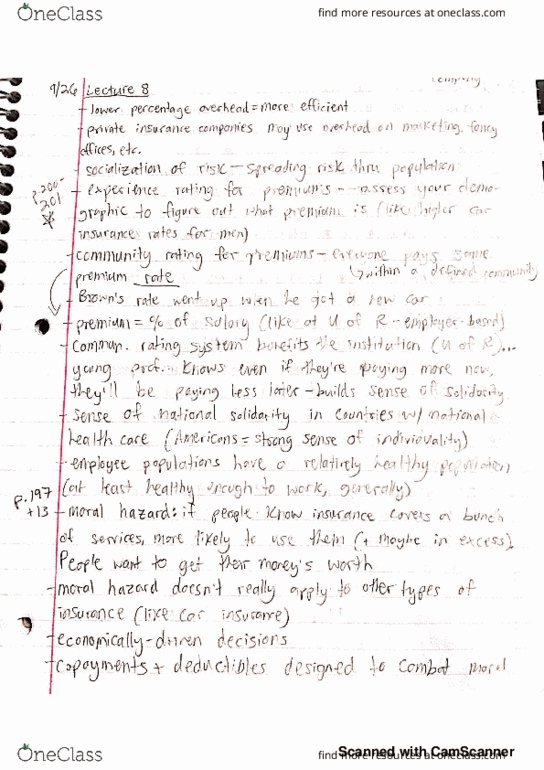 OneClass
find more resources at oneclass.com
company
9/26 Lecture 8
- lower percentage overhead = more efficient
- private insurance companies may use overhead on marketing, fancy
offices, etc.
- socialization of risk - spreading risk thru population
p. 200-
201
- experience rating for premiums - assess your demo-
graphic to figure out what premium is (like higher car
insurance rates for men)
- community rating for premiums - everyone pays same
premium rate
↳ within a defined community
- Brown's rate went up when he got a new car
- premium = % of salary (like at U of R - employer-based)
- Commun. rating system benefits the institution (U of R)...
young prof. knows even if they're paying more now,
they'll be paying less later - builds sense of solidarity
- sense of national solidarity in countries w/ national
health care (Americans = strong sense of indiviouality)
- employee populations have a relatively healthy population
(at least healthy enough to work, generally)
p. 197
+13
- moral hazard: if people know insurance covers a bunch
of services, more likely to use them (+ maybe in excess).
People want to get their money's worth
- moral hazard doesn't really apply to other types of
insurance (like car insurance)
- economically-driven decisions
- copayments + deductibles designed to combat moral
OneClass
find more resources at oneclass.com
Scanned with CamScanner